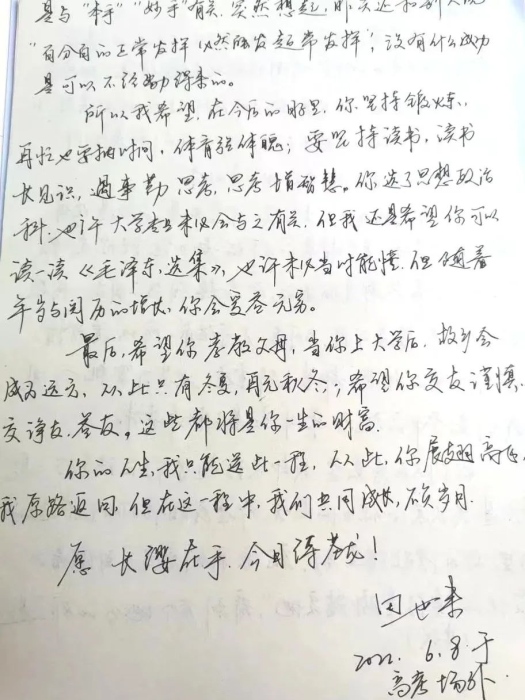 是与“本手”“妙手”有关，突然想起，昨天还和别人说
“百分百的正常发挥必然触发超常发挥”，没有什么成功
是可以不经努力得来的。
所以我希望，在今后的日子里，你坚持锻炼，
再忙也要抽时间，体育强体魄；要坚持读书，读书
长见识，遇事勤思考，思考增智慧。你选了思想政治
科，也许大学专业未必会与之有关，但我还是希望你可以
读一读《毛泽东选集》，也许未必当时能懂，但随着
年岁与阅历的增长，你会受益无穷。
最后，希望你孝敬父母，当你上大学后，故乡会
成为远方，从此只有冬夏，再无秋冬；希望你交友谨慎，
交诤友、益友。这些都将是你一生的财富。
你的人生，我只能送此一程，从此，你展翅高飞，
我原路返回，但在这一程中，我们共同成长，不负岁月。
愿长缨在手，今日缚苍龙！
田世荣
2022. 6.8.于
高考场外.